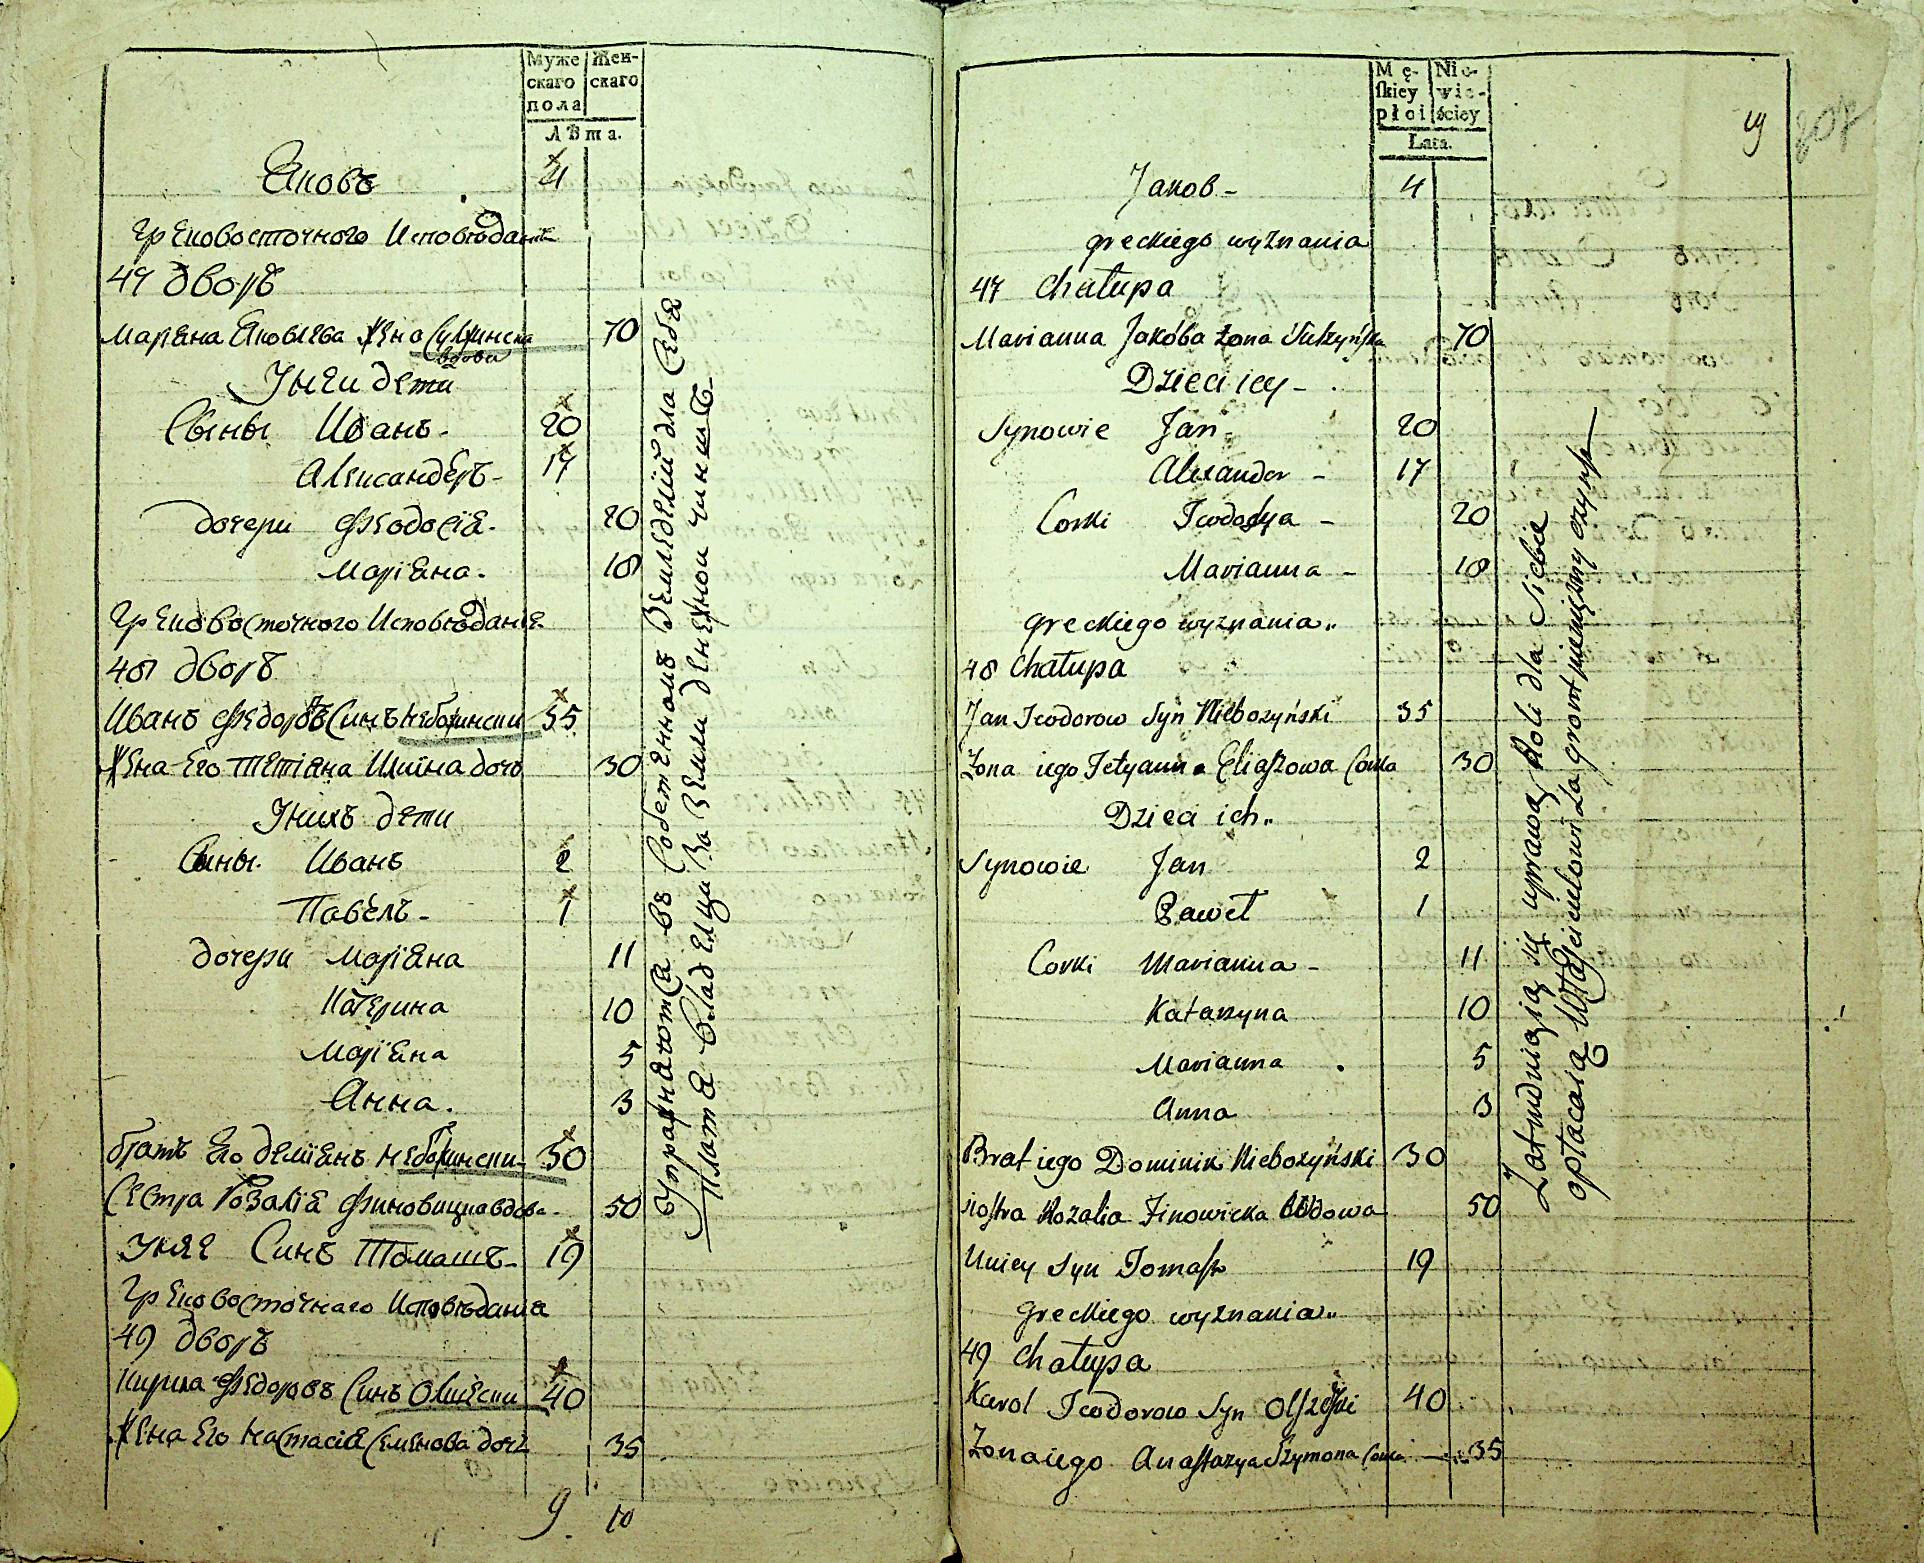 Муже Жен-
скаго скаго
пола
Лѣта.
Яковъ 4
Грековосточного Исповѣдание
47 дворъ
Мариана Яковлева жена Сулжинска 70
вдова
У неи дети
Сыны Иванъ - 20
Александеръ - 17
дочери Феодосия - 20
Мариана - 18
Грековосточного Исповѣдание
48 дворъ
Иванъ Федоровъ Синъ Небожински 35
Жена Его Тетiяна Илина дочь 30
У нихъ дети
Сыны Иванъ 2
Павелъ - 1
дочери Мариана 11
Катерина 10
Мариана 5
Анна. 3
братъ Его Демiянъ Небожински 30
Сестра Розалiя Финовицка вдова - 50
У нея Синъ Томашъ - 19
Грековосточнаго Исповѣдания
49 дворъ
Кирила Федоровъ Синъ Олшески 40
Жена Его Настасiя Семенова дочь 35
9 10
Упражняются въ Собственномъ Земледелий для Себя
Платя Владелцу За Земли денежнои чиншъ
19
207
Mę- Nie-
skiey wie-
płci ściey
Lata.
Jakob - 4
greckiego wyznania
47 Chałupa
Marianna Jakóba żona Sulzyńska 70
Dzieci iey -
Synowie Jan - 20
Alexander - 17
Corki Teodozya - 20
Marianna - 18
greckiego wyznania
48 Chałupa
Jan Teodorow Syn Niebozyński 35
Zona iego Tetyanna Eliaszowa Corka 30
Dzieci ich
Synowie Jan 2
Paweł 1
Corki Marianna - 11
Katarzyna 10
Marianna 5
Anna 3
Brat iego Dominik Niebozyński 30
siostra Rozalia Finowicka Wdowa 50
U niey Syn Tomasz 19
greckiego wyznania
49 Chałupa
Karol Teodorow Syn Olszeski 40
Zona iego Anastazya Szymona Corka 35
Zatrudniaią się uprawą Roli dla siebie
opłacaiąc Właścicielowi za grunt pieniężny czynsz